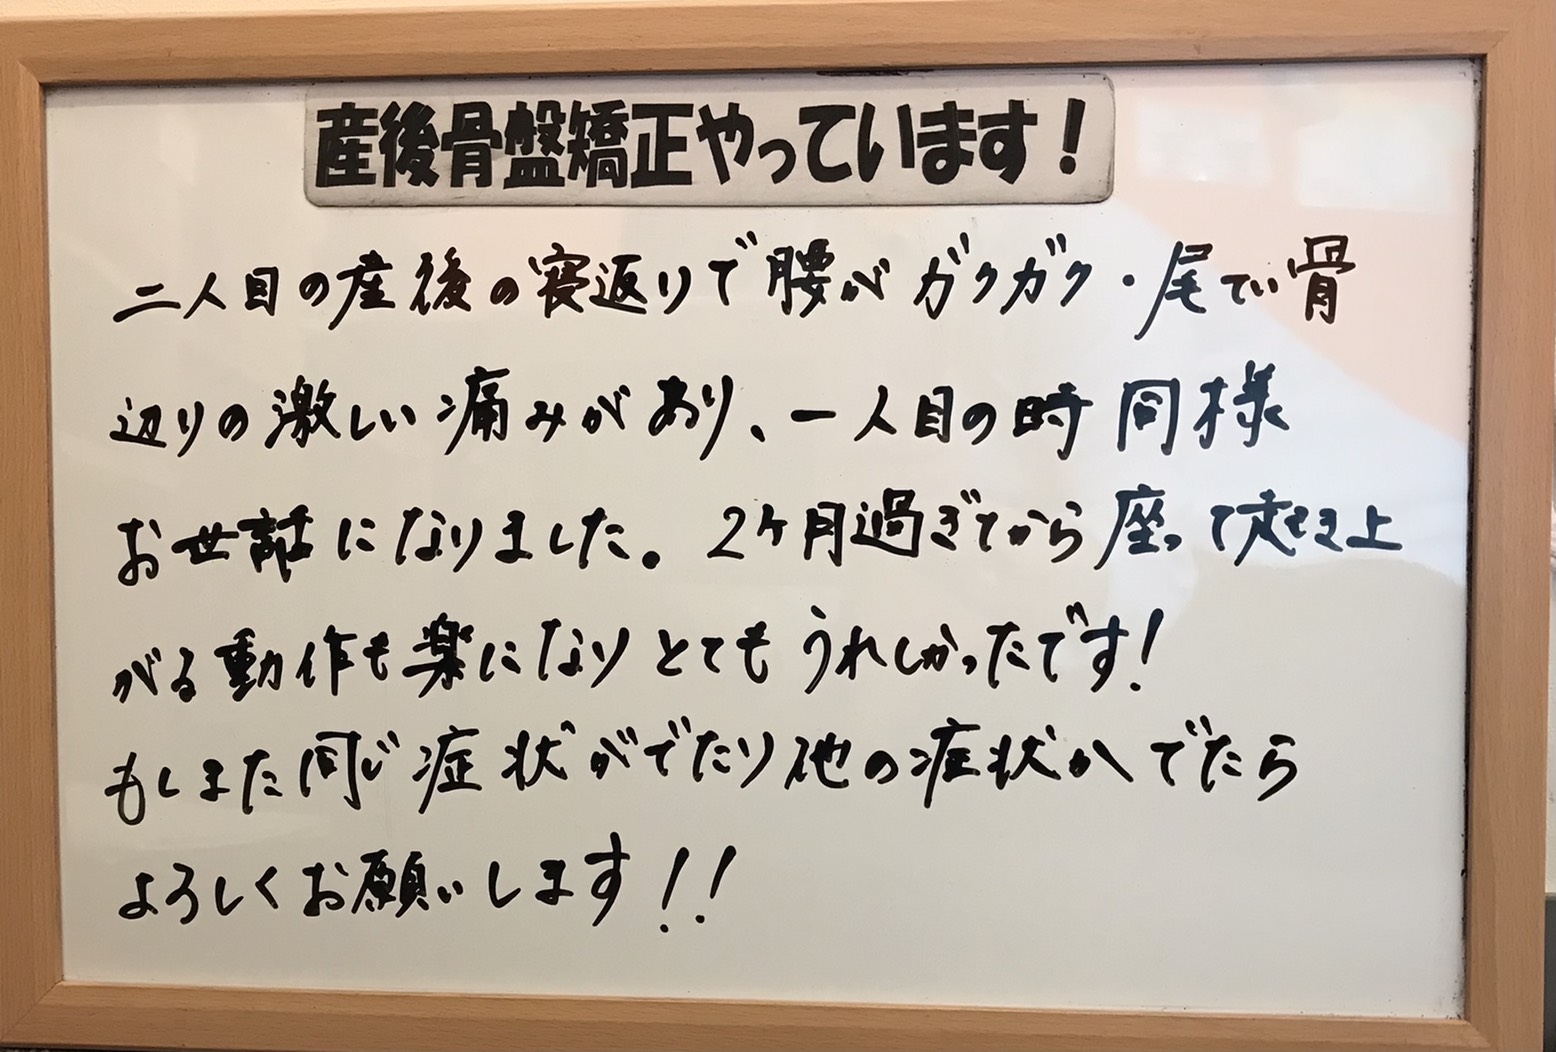 産後骨盤矯正やっています！
二人目の産後の寝返りで腰がガクガク・尾てい骨
辺りの激しい痛みがあり、一人目の時同様
お世話になりました。2ケ月過ぎてから座って起き上
がる動作も楽になりとてもうれしかったです！
もしまた同じ症状がでたり他の症状がでたら
よろしくお願いします！！